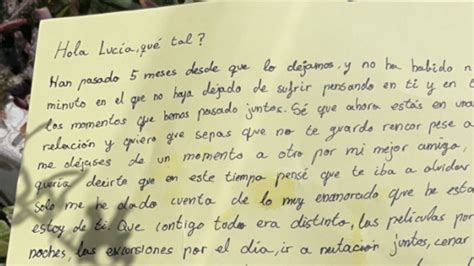 Hola Lucía, qué tal?
Han pasado 5 meses desde que lo dejamos, y no ha habido n
minuto en el que no haya dejado de sufrir pensando en ti y en t
los momentos que hemos pasado juntos. Sé que ahora estás en una
relación y quiero que sepas que no te guardo rencor pese a
me dejases de un momento a otro por mi mejor amigo,
quería decirte que en este tiempo pensé que te iba a olvidar
solo me he dado cuenta de lo muy enamorado que he esta
estoy de ti. Que contigo todo era distinto, las películas por
noches, las excursiones por el día, ir a natación juntos, cenar